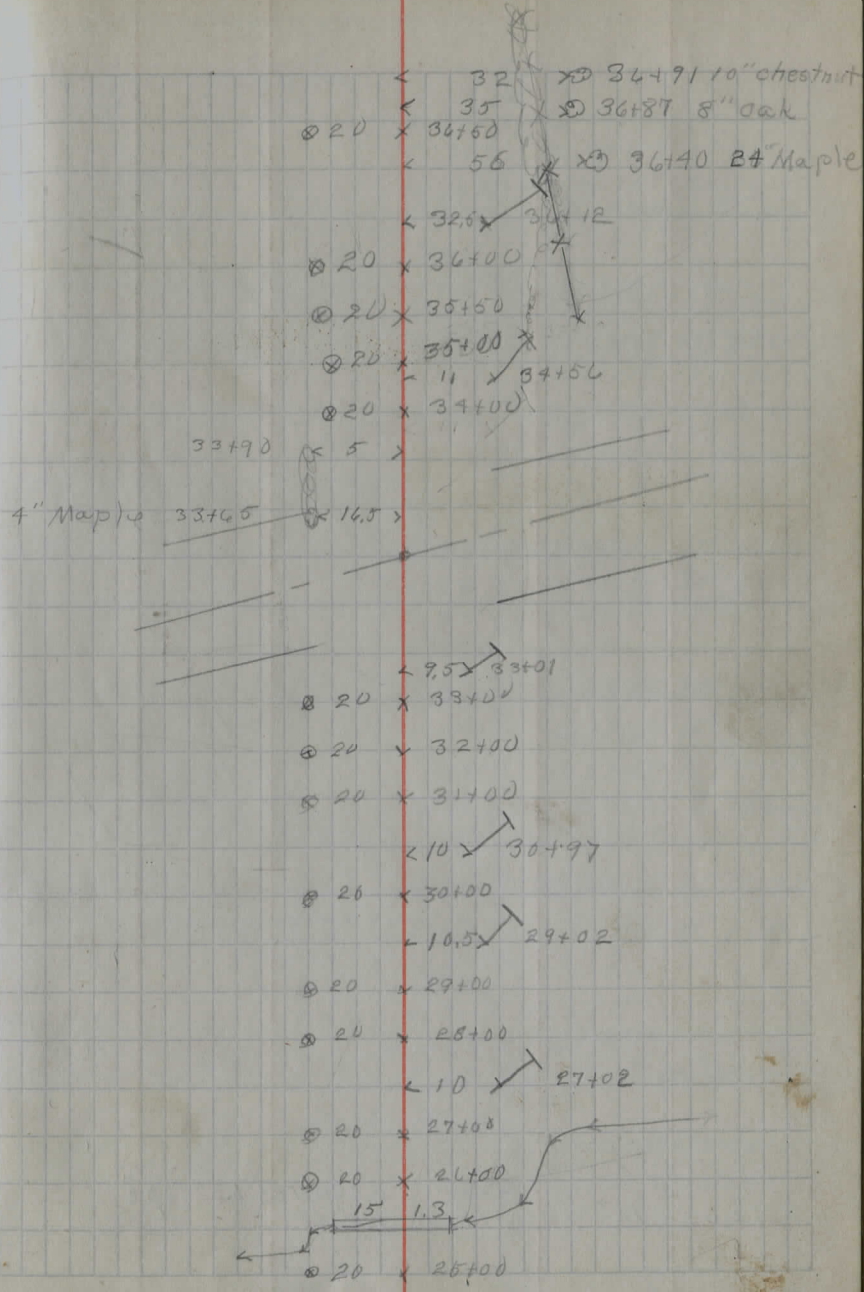 32 34+91 10" chestnut
35 36+87 8" oak
20 36+50
56 36+40 24" Maple
32.5 36+12
20 36+00
20 35+50
20 35+00
11 34+56
20 34+00
33+90 5
4" Maple 33+65 16.5
9.5 33+01
20 33+00
20 32+00
20 31+00
10 30+97
20 30+00
10.5 29+02
20 29+00
20 28+00
10 27+02
20 27+00
20 26+00
15 1.3
20 25+00